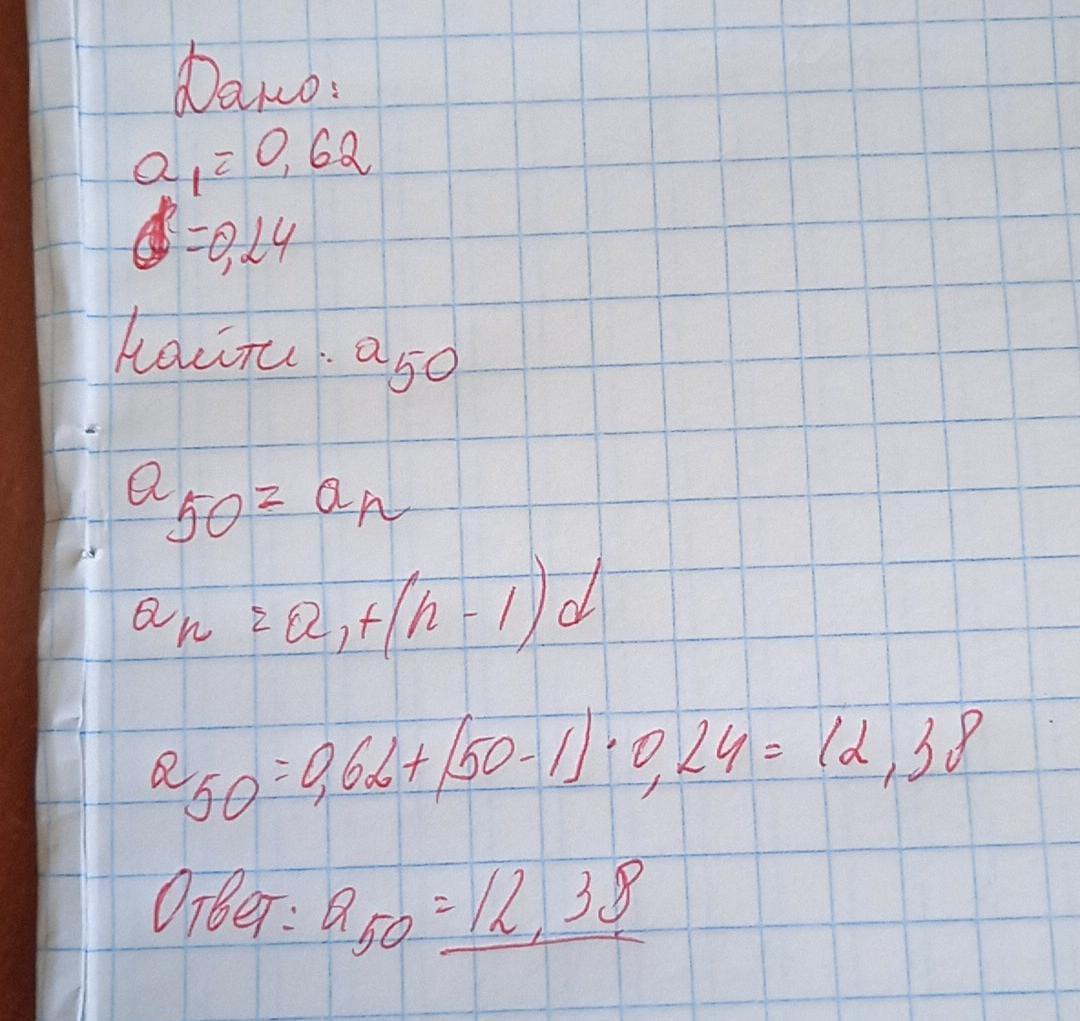 Дано:
a₁ = 0,62
d = 0,24
Найти: a₅₀
a₅₀ = aₙ
aₙ = a₁ + (n - 1) d
a₅₀ = 0,62 + (50 - 1) · 0,24 = 12,38
Ответ: a₅₀ = 12,38